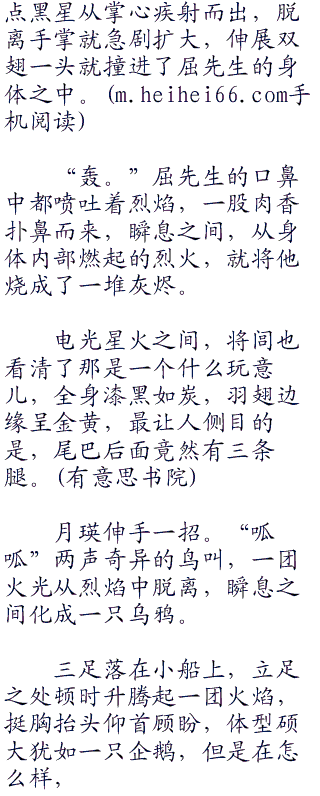 点黑星从掌心疾射而出，脱
离手掌就急剧扩大，伸展双
翅一头就撞进了屈先生的身
体之中。(m.heihei66.com手
机阅读)
“轰。”屈先生的口鼻
中都喷吐着烈焰，一股肉香
扑鼻而来，瞬息之间，从身
体内部燃起的烈火，就将他
烧成了一堆灰烬。
电光星火之间，将闾也
看清了那是一个什么玩意
儿，全身漆黑如炭，羽翅边
缘呈金黄，最让人侧目的
是，尾巴后面竟然有三条
腿。(有意思书院)
月瑛伸手一招。“呱
呱”两声奇异的鸟叫，一团
火光从烈焰中脱离，瞬息之
间化成一只乌鸦。
三足落在小船上，立足
之处顿时升腾起一团火焰，
挺胸抬头仰首顾盼，体型硕
大犹如一只企鹅，但是在怎
么样，